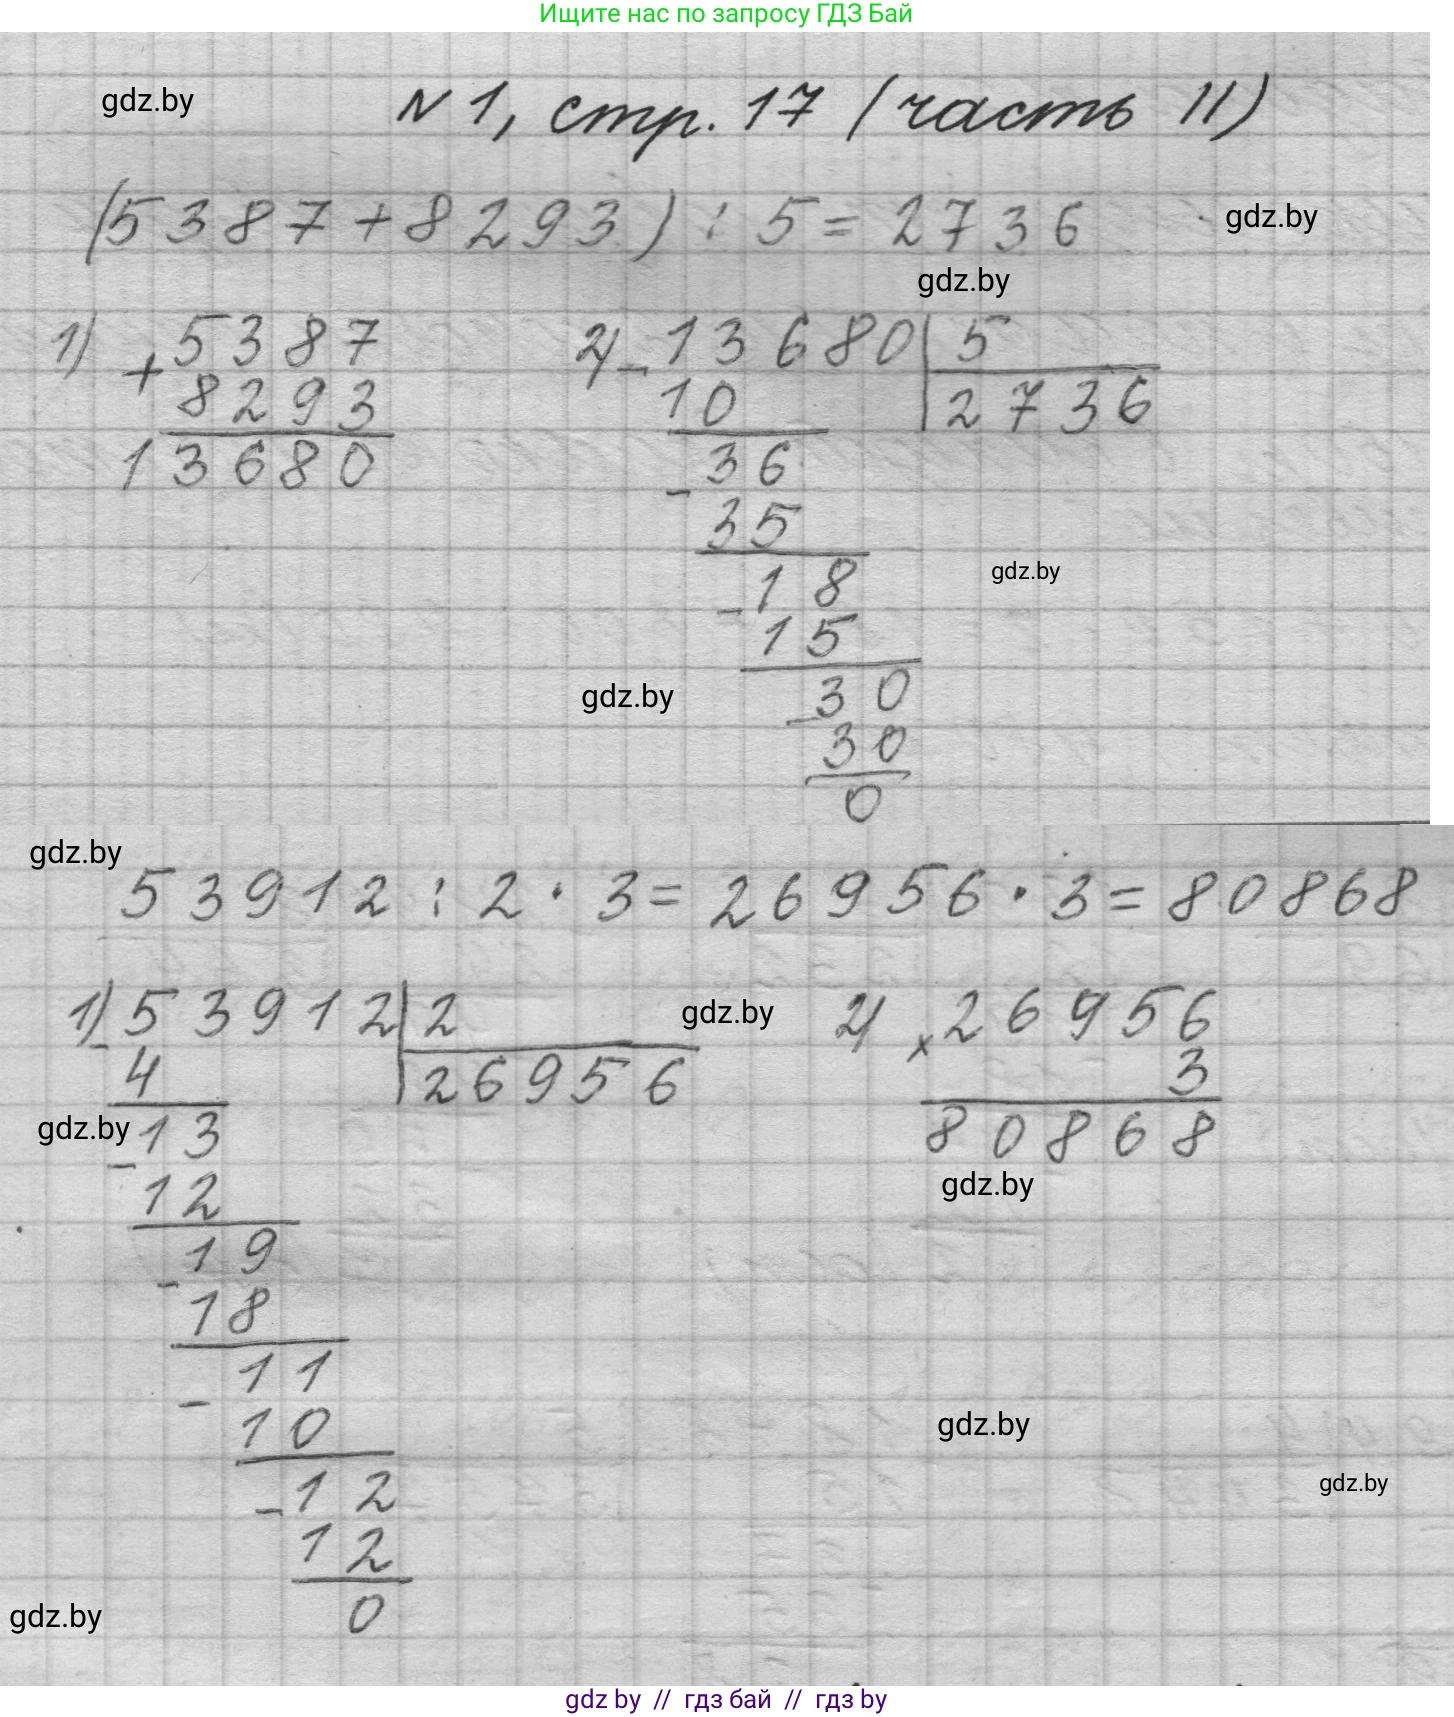 Ищите нас по запросу ГДЗ Бай
gdz.by
N 1, стр. 17 (часть II)
(5387+8293) : 5 = 2736
gdz.by
gdz.by
1) + 5387
8293
13680
2) - 13680 | 5
10 | 2736
- 36
35
- 18
15
- 30
30
0
gdz.by
gdz.by
gdz.by
53912 : 2 · 3 = 26956 · 3 = 80868
1) - 53912 | 2
4 | 26956
- 13
12
- 19
18
- 11
10
- 12
12
0
gdz.by
2) × 26956
3
80868
gdz.by
gdz.by
gdz.by
gdz.by
gdz.by
gdz by // гдз бай // гдз by